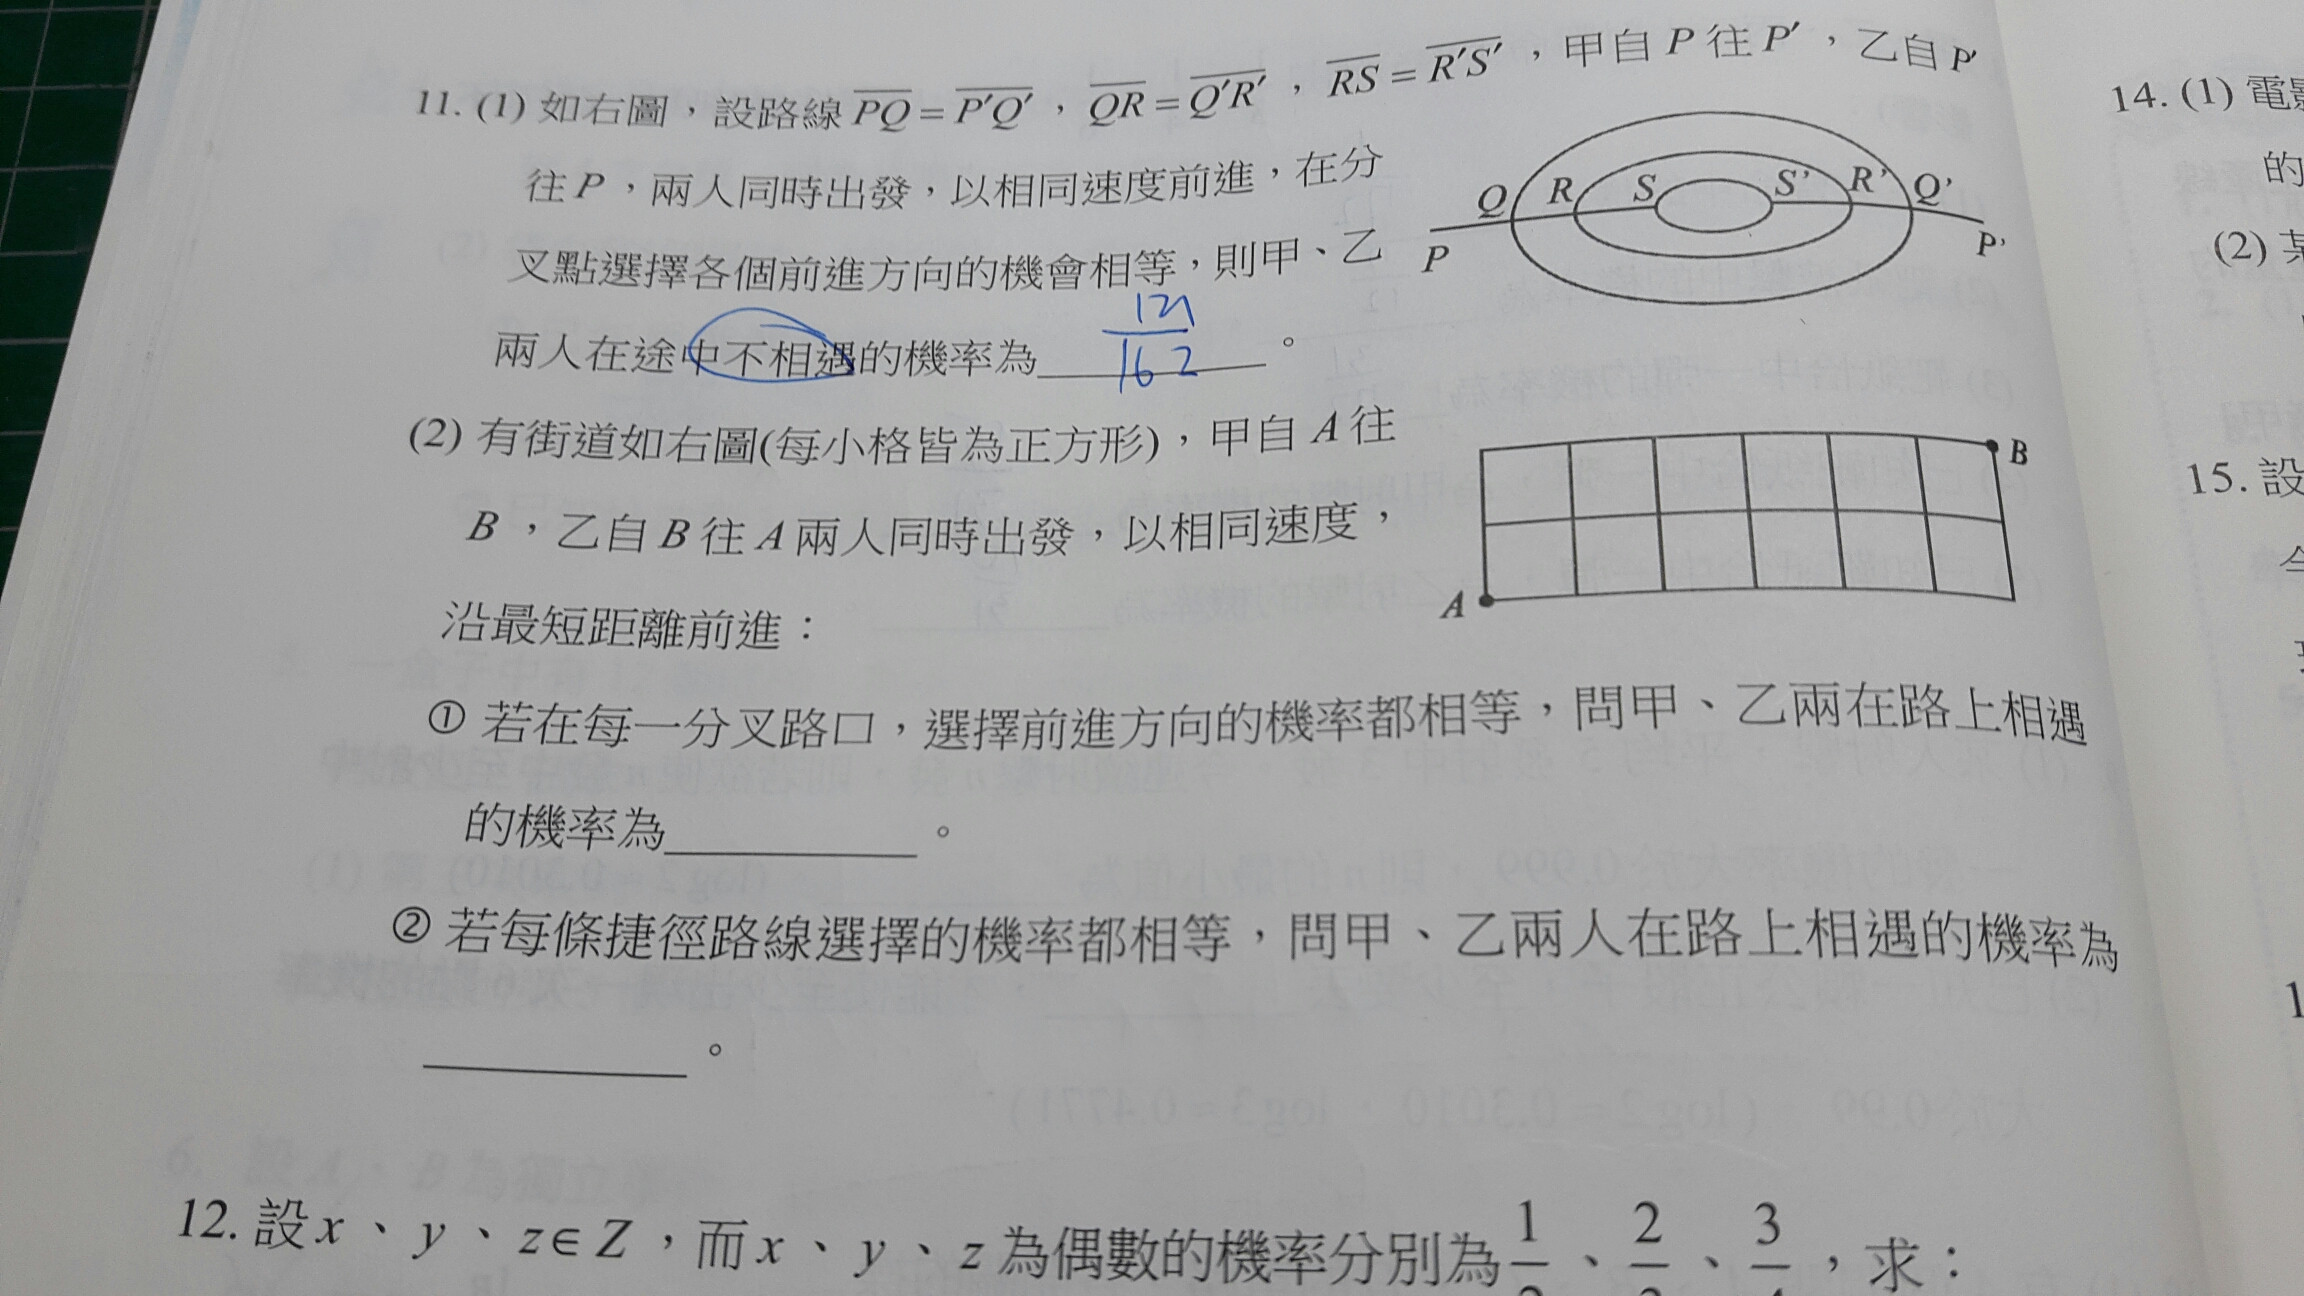 11. (1) 如右圖，設路線 PQ = P'Q'，QR = Q'R'，RS = R'S'，甲自 P 往 P'，乙自 P'
往 P，兩人同時出發，以相同速度前進，在分
叉點選擇各個前進方向的機會相等，則甲、乙
兩人在途中不相遇的機率為 121/162 。
Q R S S' R' Q'
P P'
(2) 有街道如右圖(每小格皆為正方形)，甲自 A 往
B，乙自 B 往 A 兩人同時出發，以相同速度，
沿最短距離前進：
B
A
① 若在每一分叉路口，選擇前進方向的機率都相等，問甲、乙兩在路上相遇
的機率為 。
② 若每條捷徑路線選擇的機率都相等，問甲、乙兩人在路上相遇的機率為
。
12. 設 x、y、z∈Z，而 x、y、z 為偶數的機率分別為 1/2、2/3、3/4，求：
14. (1) 電影
的
(2) 某
15. 設